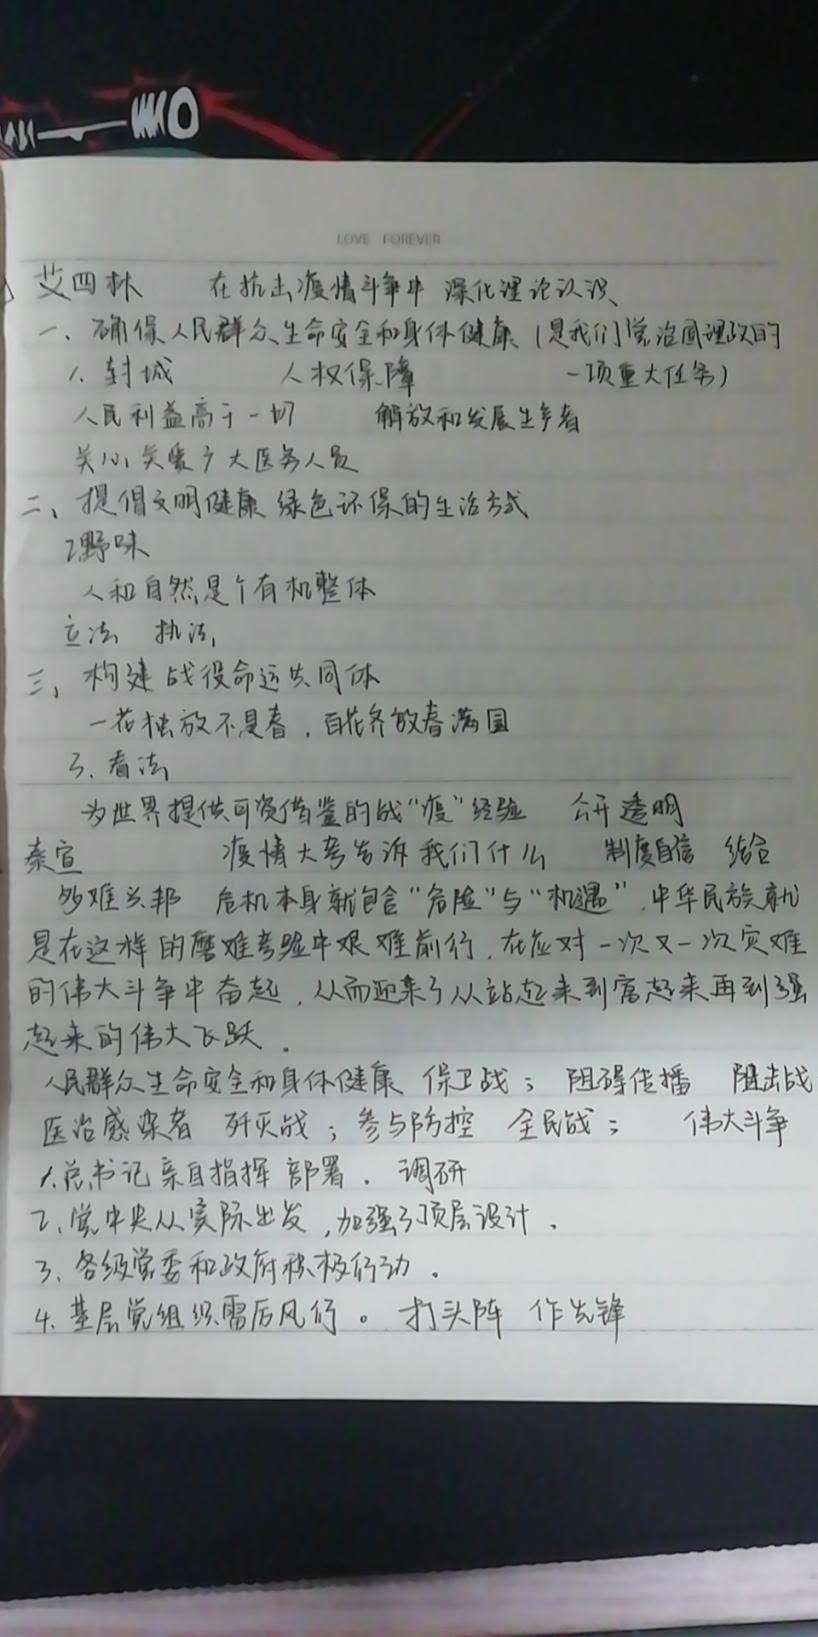 LOVE FOREVER
艾四林 在抗击疫情斗争中 深化理论认识
一、确保人民群众生命安全和身体健康 (是我们党治国理政的
1. 封城 人权保障 一项重大任务)
人民利益高于一切 解放和发展生产者
关心关爱广大医务人员
二、提倡文明健康 绿色环保的生活方式
2野味
人和自然是个有机整体
立法 执法
三、构建战役命运共同体
一花独放不是春,百花齐放春满园
3. 看法
为世界提供可资借鉴的战“疫”经验 公开透明
秦宣 疫情大考告诉我们什么 制度自信 结合
多难兴邦 危机本身就包含“危险”与“机遇”,中华民族就
是在这样的磨难考验中艰难前行,在应对一次又一次灾难
的伟大斗争中奋起,从而迎来了从站起来到富起来再到强
起来的伟大飞跃.
人民群众生命安全和身体健康 保卫战; 阻碍传播 阻击战
医治感染者 歼灭战; 参与防控 全民战; 伟大斗争
1.总书记亲自指挥 部署. 调研
2、党中央从实际出发,加强了顶层设计.
3、各级党委和政府积极行动.
4. 基层党组织雷厉风行。 打头阵 作先锋